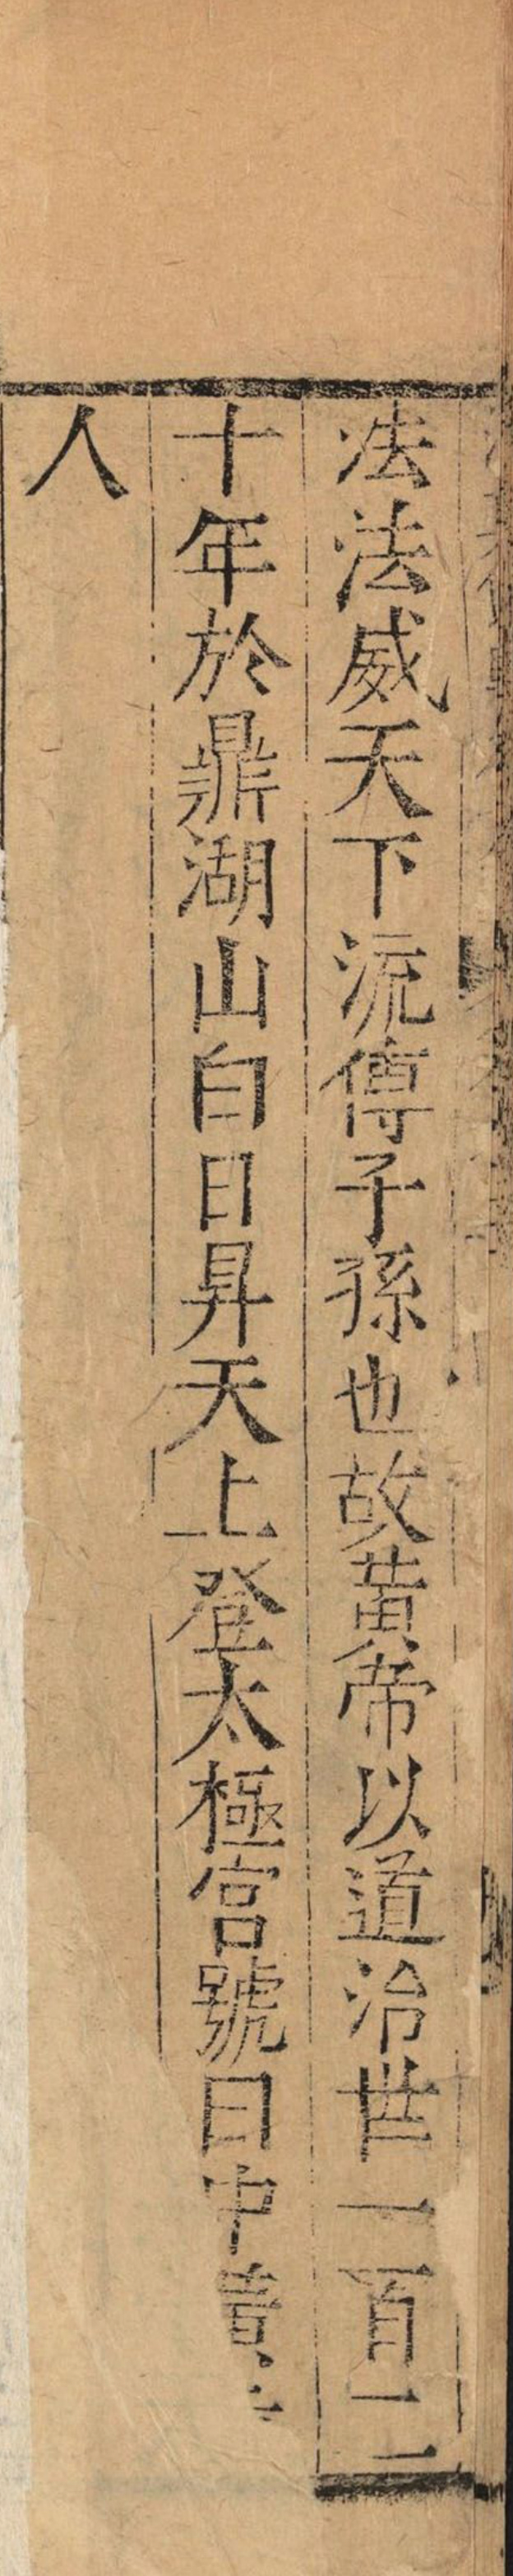 法法威天下流傳子孫也故黃帝以道治世一百二
十年於鼎湖山白日昇天上登太極宮號曰中黃
人